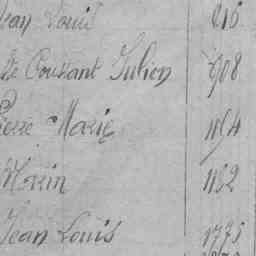 Jean Louis 216
Le Coussant Julien 908
Pierre Marie 1154
Morin 1152
Jean Louis 1775